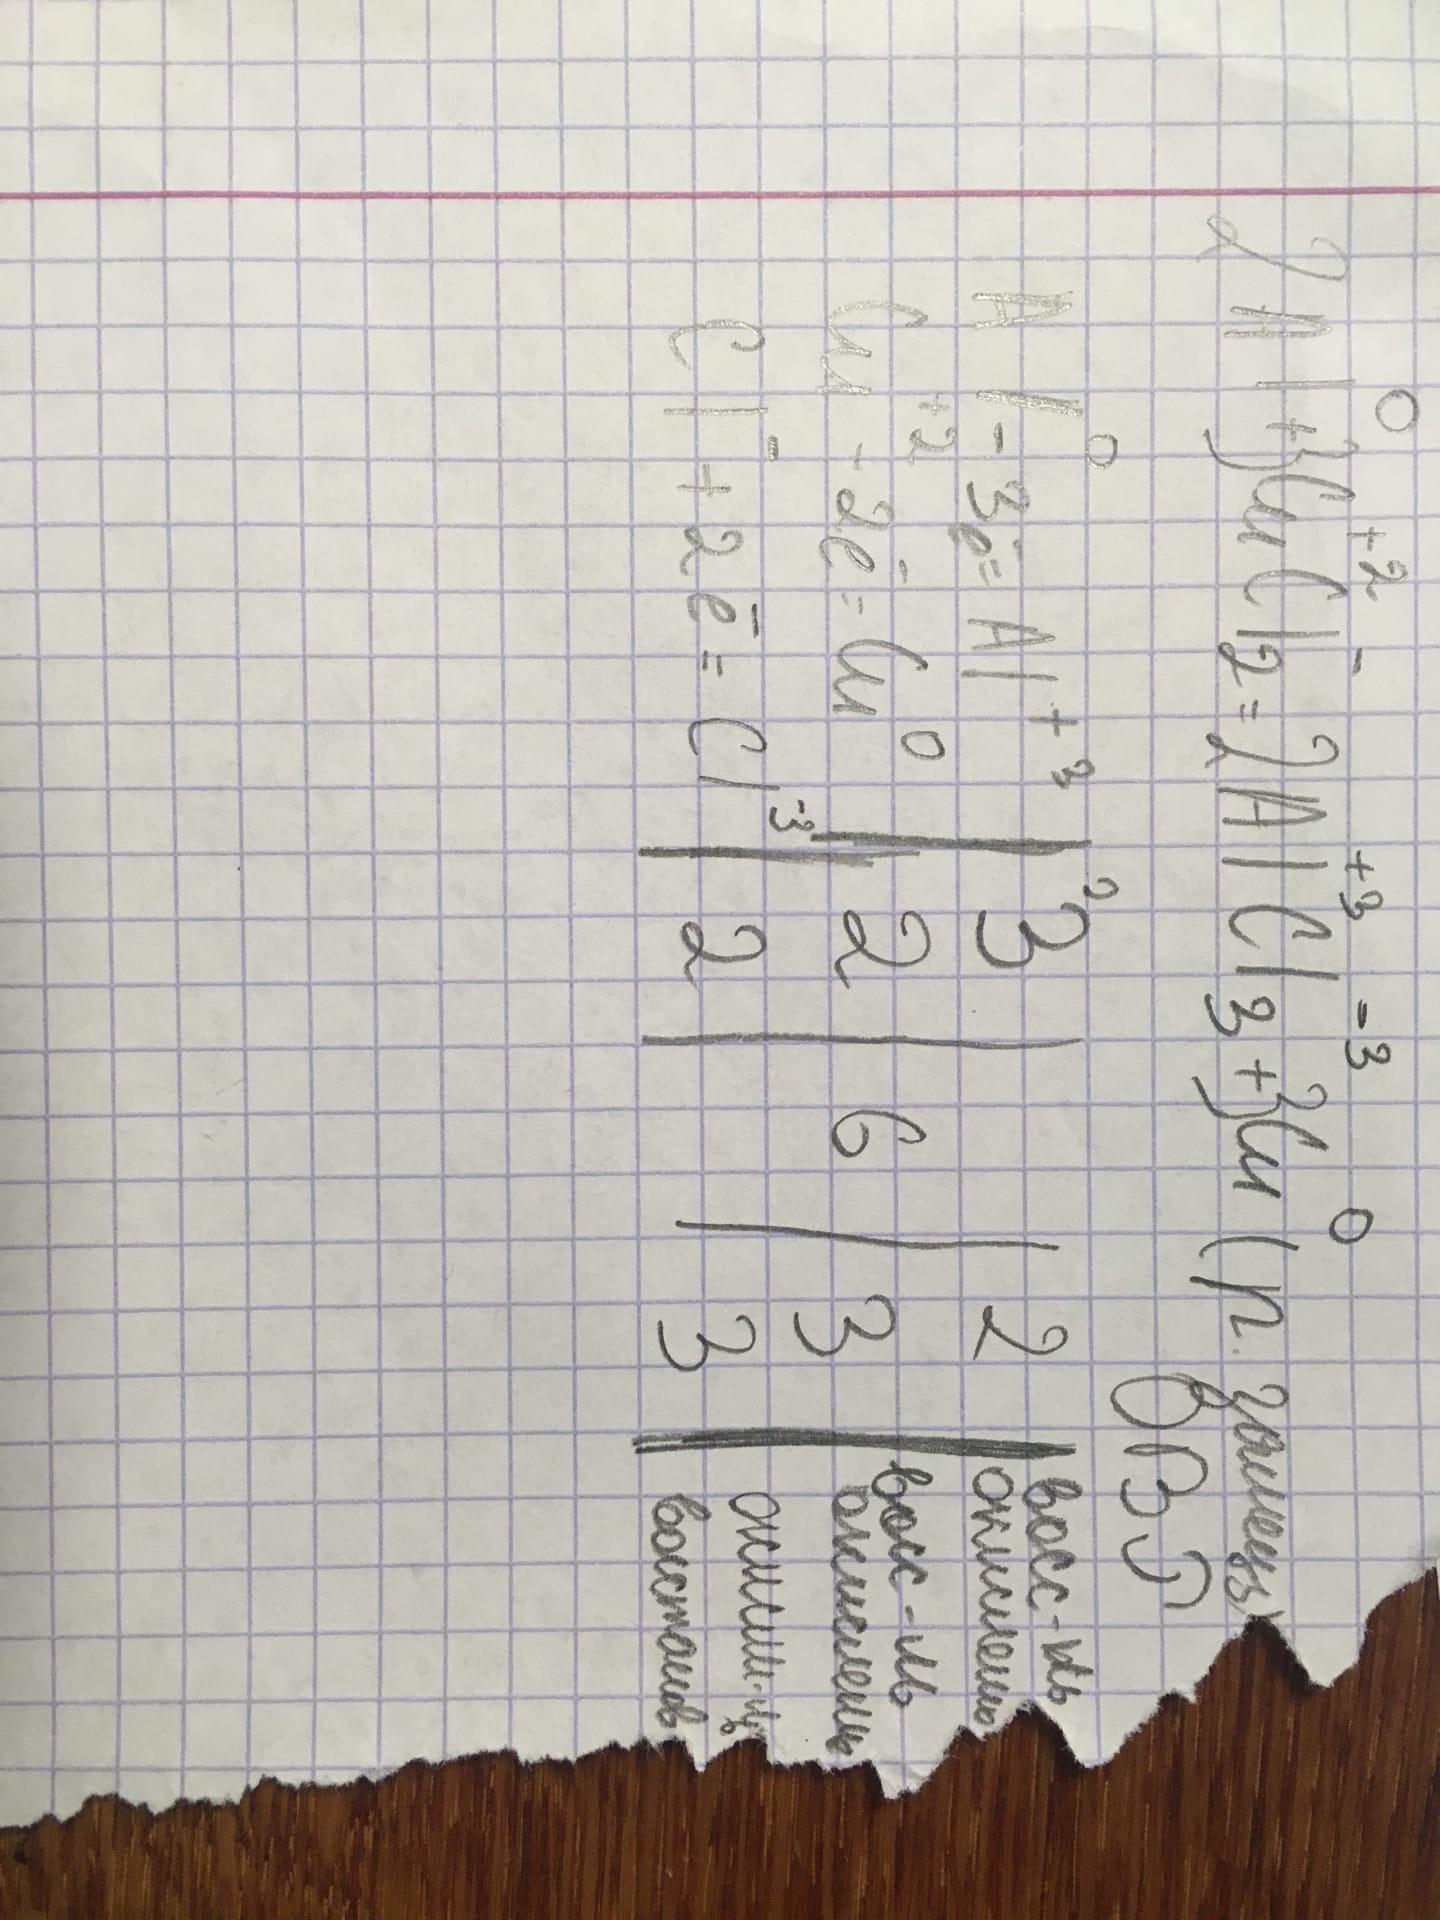 2Al⁰+3Cu⁺²Cl₂⁻=2Al⁺³Cl₃⁻³+3Cu⁰ (р. замещ
ОВР
Al⁰-3ē=Al⁺³ | 3 | 6 | 2 | восс-ль окислени
Cu⁺²-2ē=Cu⁰ | 2 | 3 | восс-ль окислени
Cl⁻+2ē=Cl⁻³ | 2 | 3 | окисли-ль восстанов